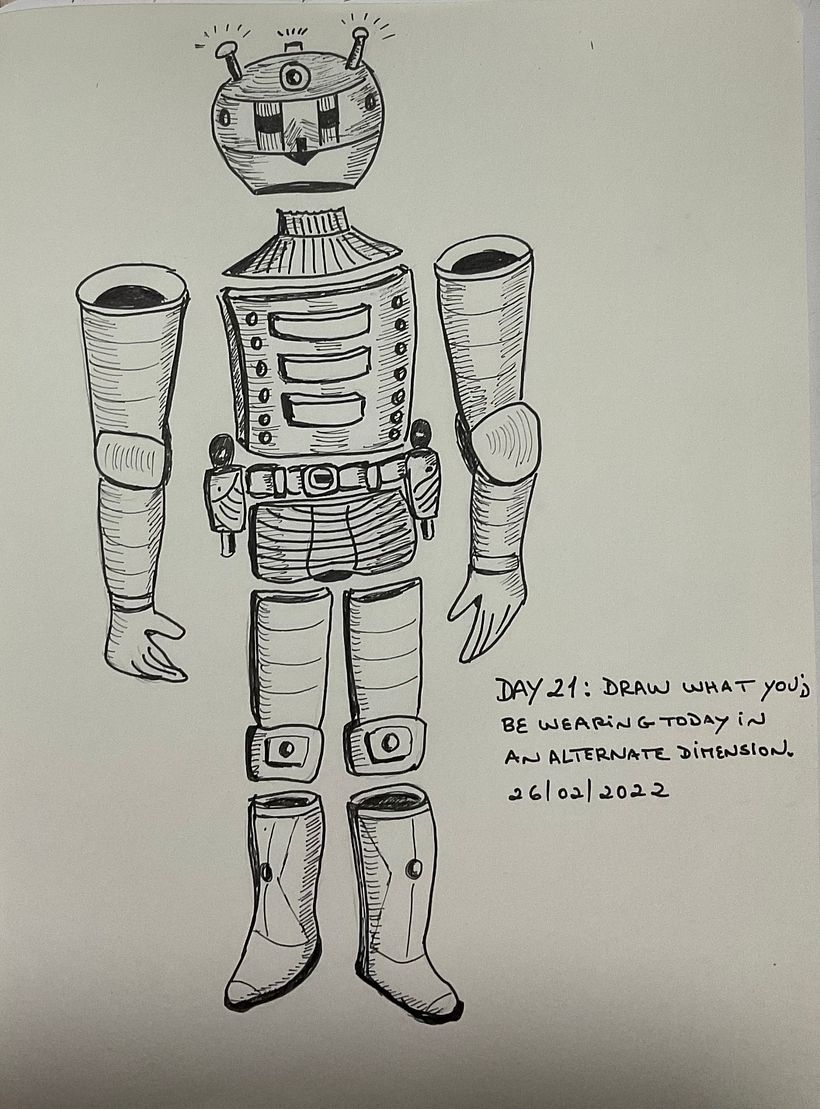 DAY 21: DRAW WHAT YOU'D
BE WEARING TODAY IN
AN ALTERNATE DIMENSION.
26/02/2022